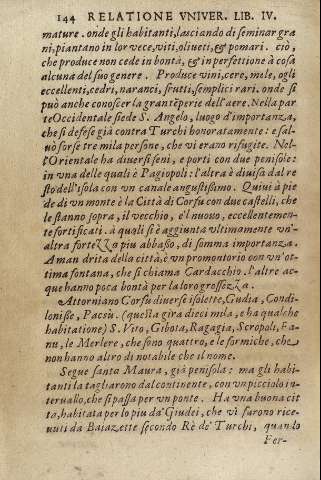 144 RELATIONE VNIVER. LIB. IV.
mature. onde gli habitanti, lasciando di seminar gra
ni, piantano in lor vece, viti, oliueti, & pomari. ciò,
che produce non cede in bontà, & in perfettione à cosa
alcuna del suo genere. Produce vini, cere, mele, ogli
eccellenti, cedri, naranci, frutti, semplici rari. onde si
può anche conoscer la gran tēperie dell'aere. Nella par
te Occidentale siede S. Angelo, luogo d'importanza,
che si defese già contra Turchi honoratamente: e sal-
uò forse tre mila persone, che vi erano rifugite. Nel-
l'Orientale ha diuersi seni, e porti con due penisole:
in vna delle quali è Pagiopoli: l'altra è diuisa dal re
sto dell'Isola con vn canale angustissimo. Quiui à pie
de di vn monte è la Città di Corfu con due castelli, che
le stanno sopra, il vecchio, e'l nuouo, eccellentemen-
te fortificati. à quali si è aggiunta vltimamente vn'
altra fortezza piu abbasso, di somma importanza.
A man dritta della città, è vn promontorio con vn'ot-
tima fontana, che si chiama Cardacchio. l'altre ac-
que hanno poca bontà per la loro grossezza.
Attorniano Corfù diuerse isolette, Gudia, Condi-
lonise, Pacsù. (questa gira dieci mila, e ha qualche
habitatione) S. Vito, Gibota, Ragagia, Scropoli, Fa-
nu, le Merlere, che sono quattro, e le formiche, che
non hanno altro di notabile che il nome.
Segue santa Maura, già penisola: ma gli habi-
tanti la tagliarono dal continente, con vn picciolo in
teruallo, che si passa per vn ponte. Ha vna buona cit
tà, habitata per lo piu da' Giudei, che vi furono rice-
uuti da Baiazette secondo Rè de' Turchi, quando
Fer-